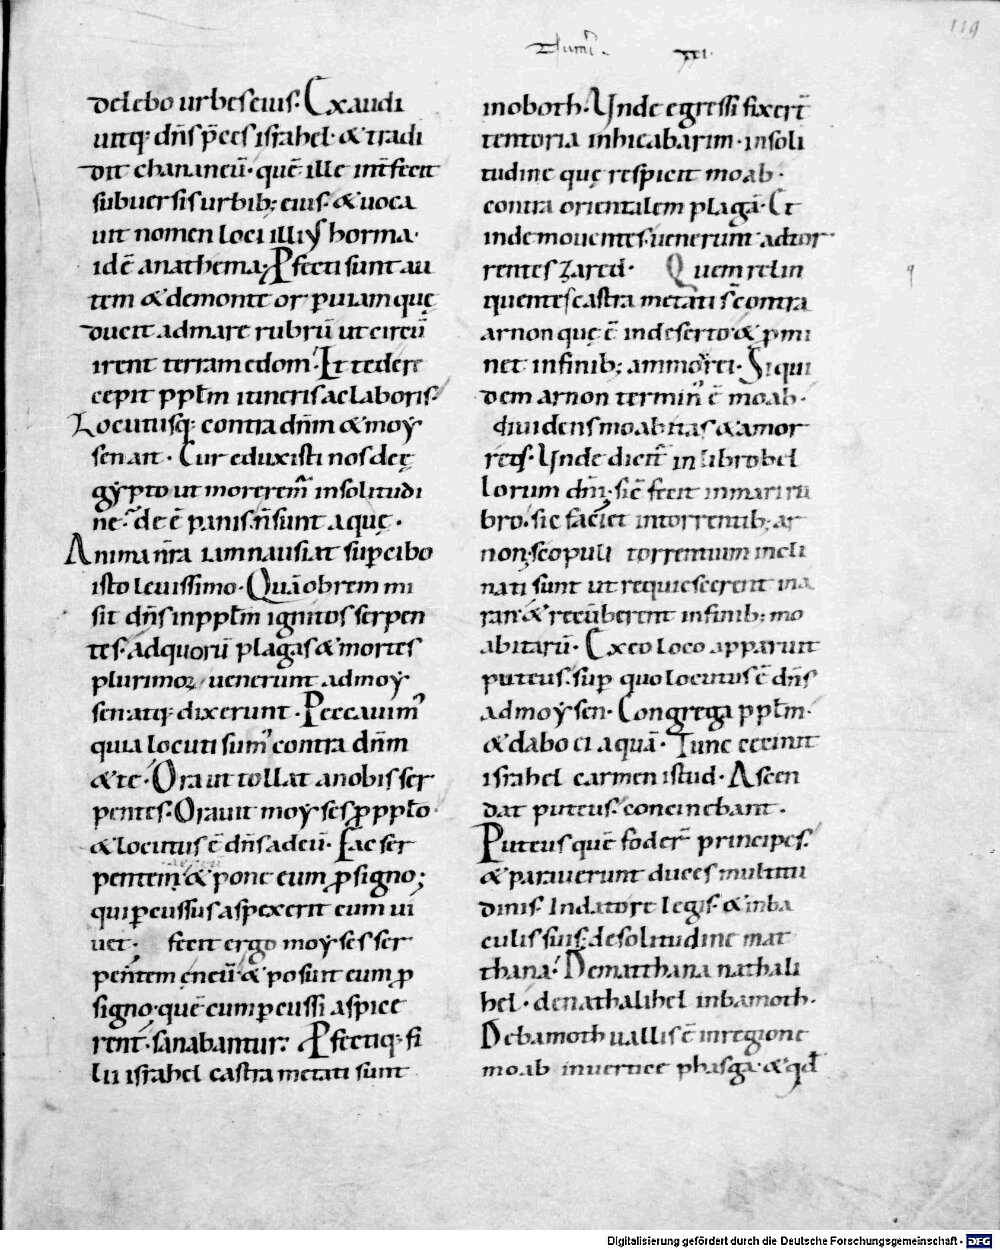 119
Numeri
XXI.
delebo urbes eius. Exaudi
uitq; dn̄s p̄ces israhel. & tradi
dit chananeū. quē ille int̄fecit
subuersis urbib; eius. & uoca
uit nomen loci illiꝰ horma.
id ē anathema; Pfecti sunt au
tem & de monte or p uiam quę
ducit ad mare rubrū ut circū
irent terram edom. Et tedere
cepit pplm̄ itineris ac laboris.
Locutusq; contra dn̄m & moy
sen ait. Cur eduxisti nos de ę
gypto ut moreremꝰ in solitudi
ne. deē panis. n̄ sunt aquę.
Anima nr̄a iam nausiat sup cibo
isto leuissimo. Quāobrem mi
sit dn̄s in pplm̄ ignitos serpen
tes. ad quorū plagas & mortes
plurimoꝝ uenerunt ad moy
sen. atq; dixerunt. Peccauimꝰ
quia locuti sumꝰ contra dn̄m
& te. Ora ut tollat a nobis ser
pentes. Orauit moyses p pplo
& locutus ē dn̄s ad eū. Fac ser
pentem & pone eum p signo;
qui pcussus aspexerit eum ui
uet. fecit ergo moyses ser
pentem ęneū. & posuit eum p
signo. quē cum pcussi aspice
rent. sanabantur. Pfectiq; fi
lii israhel castra metati sunt
in oboth. Unde egressi fixert̄
tentoria in hieabarim. in soli
tudine quę respicit moab.
contra orientalem plagā. Et
inde mouentes. uenerunt ad tor
rentes zared. Quem relin
quentes castra metati s̄ contra
arnon quę ē in deserto & pmi
net in finib; ammorrei. Siqui
dem arnon terminꝰ ē moab.
diuidens moabitas & amor
reos. Unde dicit̄ in libro bel
lorum dn̄i. sic̄ fecit in mari ru
bro. sic faciet in torrentib; ar
non. scopuli torrentium incli
nati sunt ut requiescerent in a
ran & recūberent in finib; mo
abitarū. Ex eo loco apparuit
puteus. sup quo locutus ē dn̄s
ad moysen. Congrega pplm̄.
& dabo ei aquā. Tunc cecinit
israhel carmen istud. Ascen
dat puteus. concinebant.
Puteus quē foder̄ principes.
& parauerunt duces multitu
dinis. In datore legis. & in ba
culis suis. de solitudine mat
thana. De matthana nathali
hel. de nathalihel in bamoth.
De bamoth uallis ē in regione
moab in uertice phasga. & qd̄
Digitalisierung gefördert durch die Deutsche Forschungsgemeinschaft - DFG